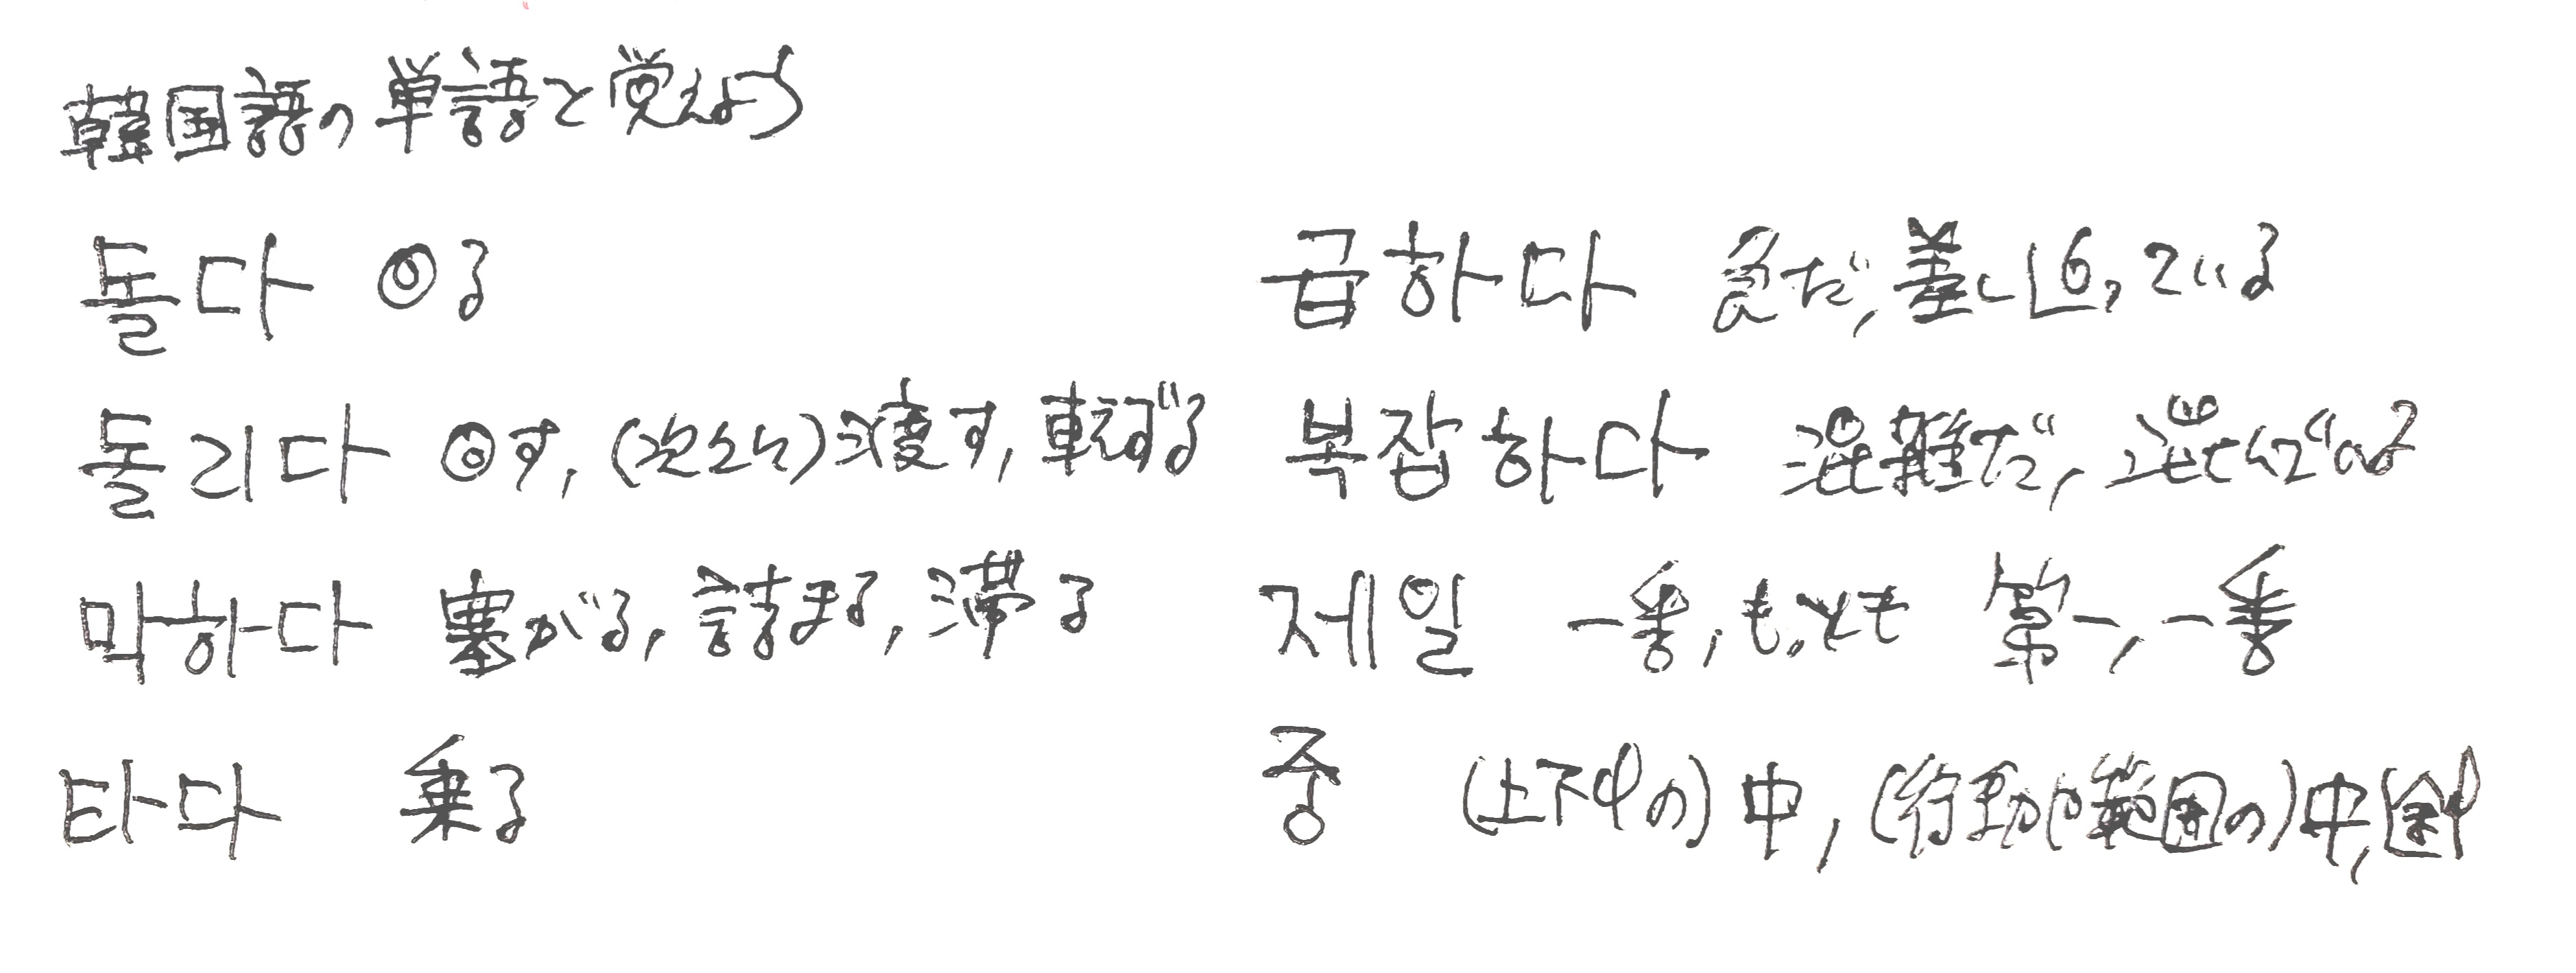 韓国語の単語を覚えよう
돌다 回る
돌리다 回す, (次々に)渡す, 転ずる
막하다 塞がる, 詰まる, 滞る
타다 乗る
급하다 急だ, 差し迫っている
복잡하다 混雑だ, 混んでいる
제일 一番, もっとも 第一, 一番
중 (上下中の)中, (行動や範囲の)中, 途中